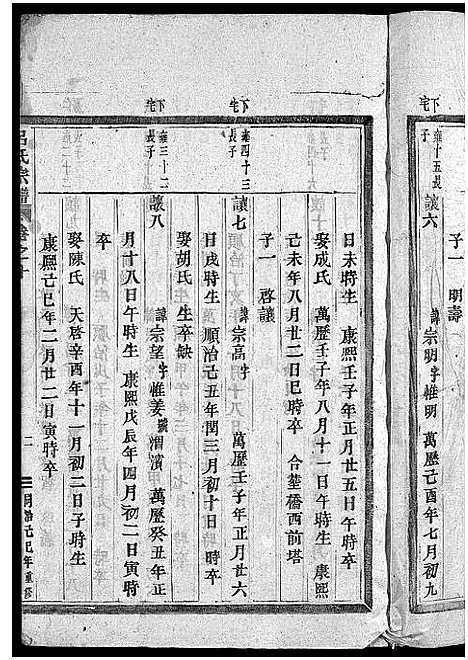 下宅
雍十五長子
讓六
諱宗明字惟明 萬歷己酉年七月初九
子一 明壽
日未時生 康熙壬子年正月廿五日午時卒
娶成氏 萬歷壬子年八月十一日午時生 康熙
己未年八月廿二日巳時卒 合塟橋西前塔
子一 啓讓
下宅
雍四十三長子
讓七
諱宗高字 萬歷壬子年正月廿六
日戌時生 順治己丑年閏三月初十日時卒
娶胡氏 生卒缺
下宅
雍三十二長子
讓八
諱宗望字惟姜號渭濱 萬歷癸丑年正
月十八日午時生 康熙戊辰年四月初二日寅時
卒
娶陳氏 天啓辛酉年十一月初二日子時生
康熙己巳年二月廿二日寅時卒
呂氏宗譜 卷之十 二 己巳年重修